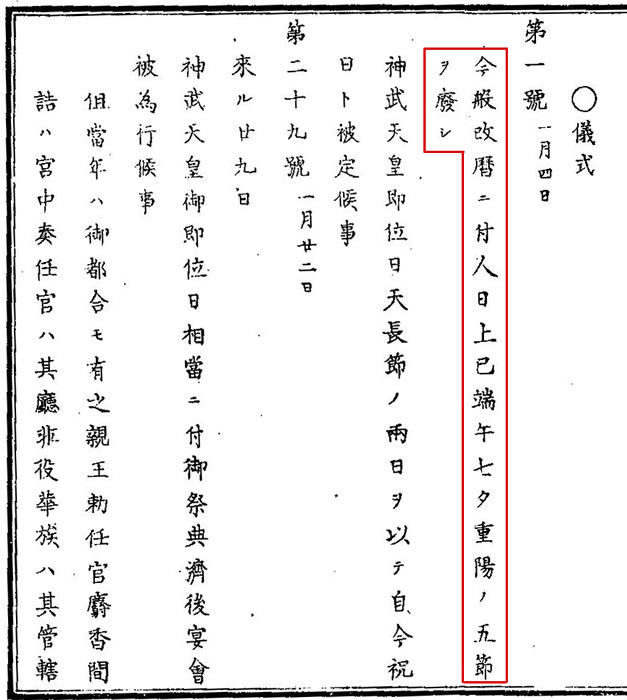 ◯儀式
第一號 一月四日
今般改曆ニ付人日上巳端午七夕重陽ノ五節
ヲ廢シ
神武天皇即位日天長節ノ兩日ヲ以テ自今祝
日ト被定候事
第二十九號 一月廿二日
來ル廿九日
神武天皇御即位日相當ニ付御祭典濟後宴會
被為行候事
但當年ハ御都合モ有之親王勅任官麝香間
詰ハ宮中奏任官ハ其廳非役華族ハ其管轄